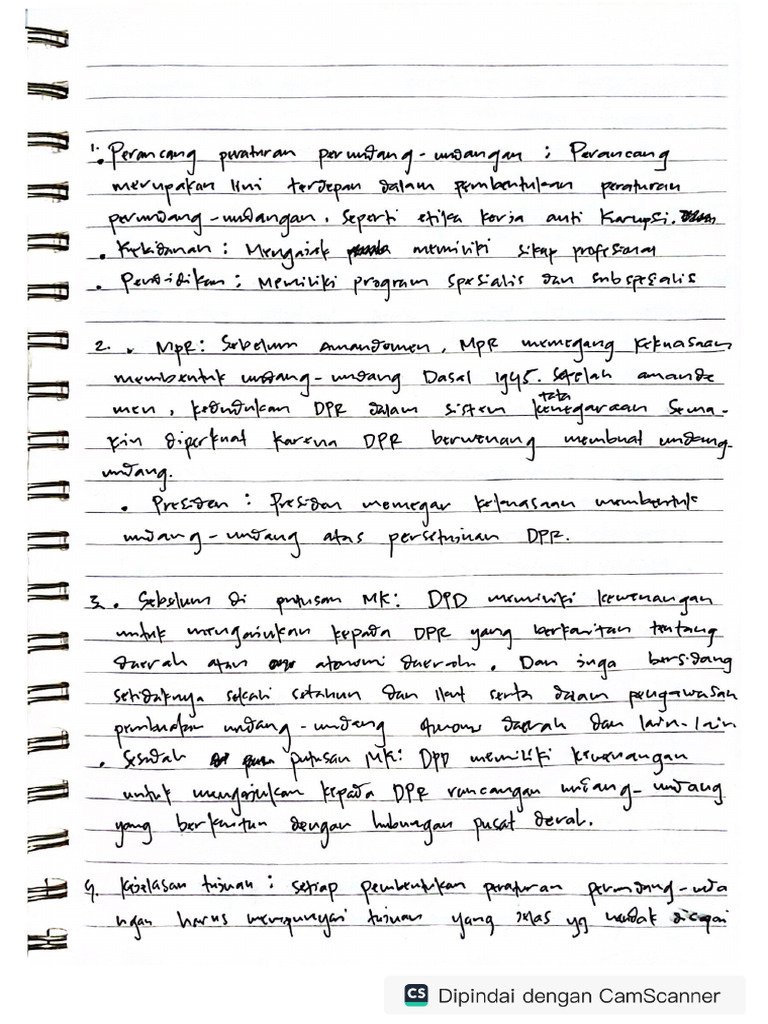 1. • Perancang peraturan perundang-undangan : Perancang
merupakan lini terdepan dalam pembentukan peraturan
perundang-undangan. Seperti etika kerja anti Karupsi.
• Kekidanan : Mengajak memiliki sikap profesional
• Pendidikan : Memiliki program spesialis dan subspesialis
2. • MPR : Sebelum Amandemen, MPR memegang kekuasaan
membentuk undang-undang Dasal 1945. Setelah amande
men, kedudukan DPR dalam sistem tata kenegaraan sema-
kin diperkuat karena DPR berwenang membuat undang-
undang.
• Presiden : Presiden memegar kekuasaan membentuk
undang-undang atas persetujuan DPR.
3. • Sebelum di putusan MK : DPD memiliki kewenangan
untuk mengajukan kepada DPR yang berkaitan tentang
daerah atau atonomi daerah. Dan juga bersidang
setidaknya sekali setahun dan ikut serta dalam pengawasan
pembuatan undang-undang daerah dan lain-lain
• Sesudah putusan MK : DPD memiliki kewenangan
untuk mengajukan kepada DPR rancangan undang-undang
yang berkaitan dengan hubungan pusat
4. Kejelasan tujuan : setiap pembentukan peraturan perundang-unda
ngan harus mempunyai tujuan yang jelas yg hendak dicapai
CS Dipindai dengan CamScanner